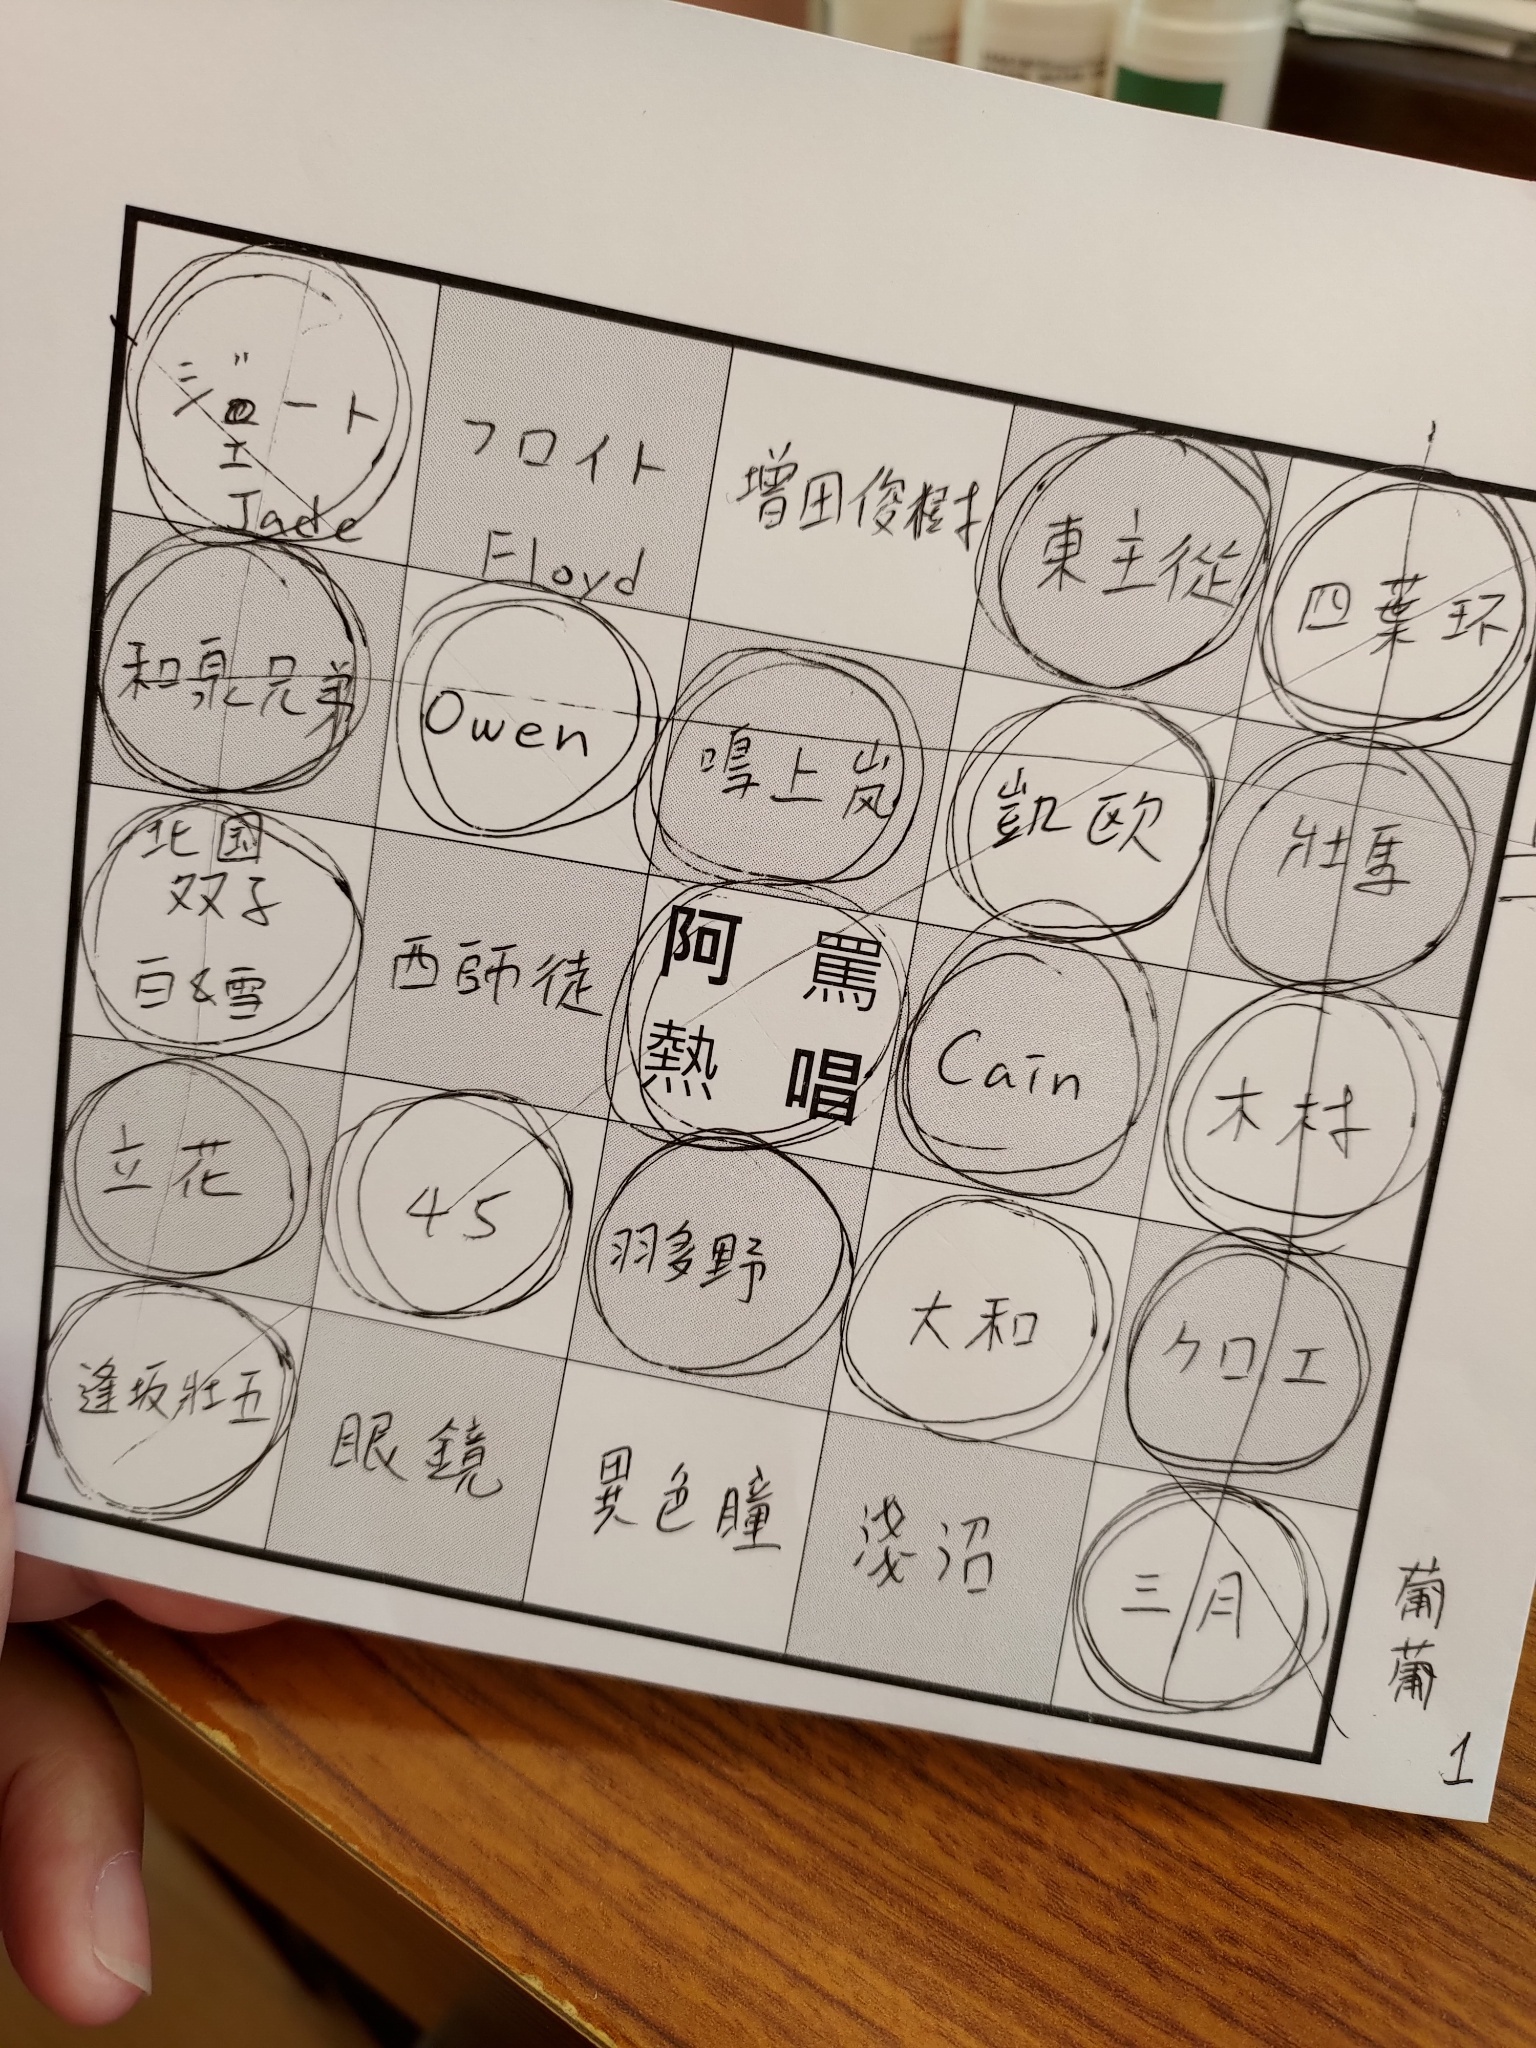 ジェード
Jade
フロイト
Floyd
増田俊樹
東主從
四葉环
和泉兄弟
Owen
鳴上岚
凱欧
壮馬
北国
双子
白&雪
西師徒
阿 罵
熱 唱
Cain
木村
立花
45
羽多野
大和
クロエ
逢坂壯五
眼鏡
異色瞳
淺沼
三月
葡
葡
1